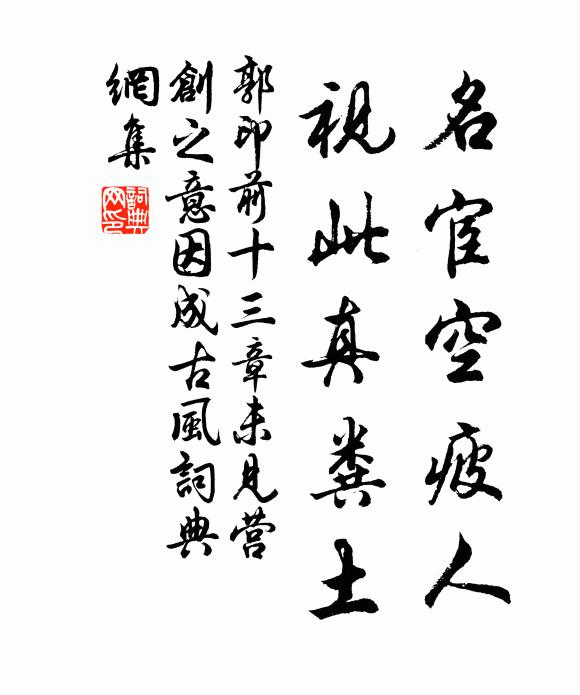 名宦空疲人
視此真粪土
郭印前十三章未見营
創之意因成古風詞典
網集
詞典
网印